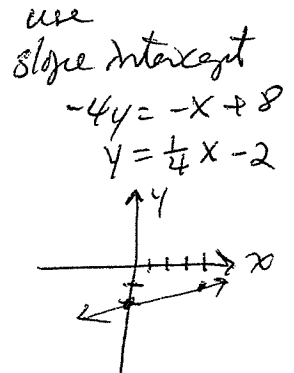 use
slope intercept
-4y = -x + 8
y = 1/4 x - 2
y
x